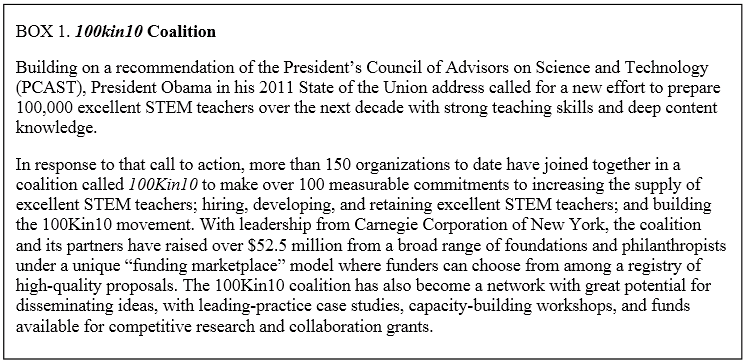 BOX 1. 100kin10 Coalition
Building on a recommendation of the President's Council of Advisors on Science and Technology
(PCAST), President Obama in his 2011 State of the Union address called for a new effort to prepare
100,000 excellent STEM teachers over the next decade with strong teaching skills and deep content
knowledge.
In response to that call to action, more than 150 organizations to date have joined together in a
coalition called 100Kin10 to make over 100 measurable commitments to increasing the supply of
excellent STEM teachers; hiring, developing, and retaining excellent STEM teachers; and building
the 100Kin10 movement. With leadership from Carnegie Corporation of New York, the coalition
and its partners have raised over $52.5 million from a broad range of foundations and philanthropists
under a unique “funding marketplace” model where funders can choose from among a registry of
high-quality proposals. The 100Kin10 coalition has also become a network with great potential for
disseminating ideas, with leading-practice case studies, capacity-building workshops, and funds
available for competitive research and collaboration grants.